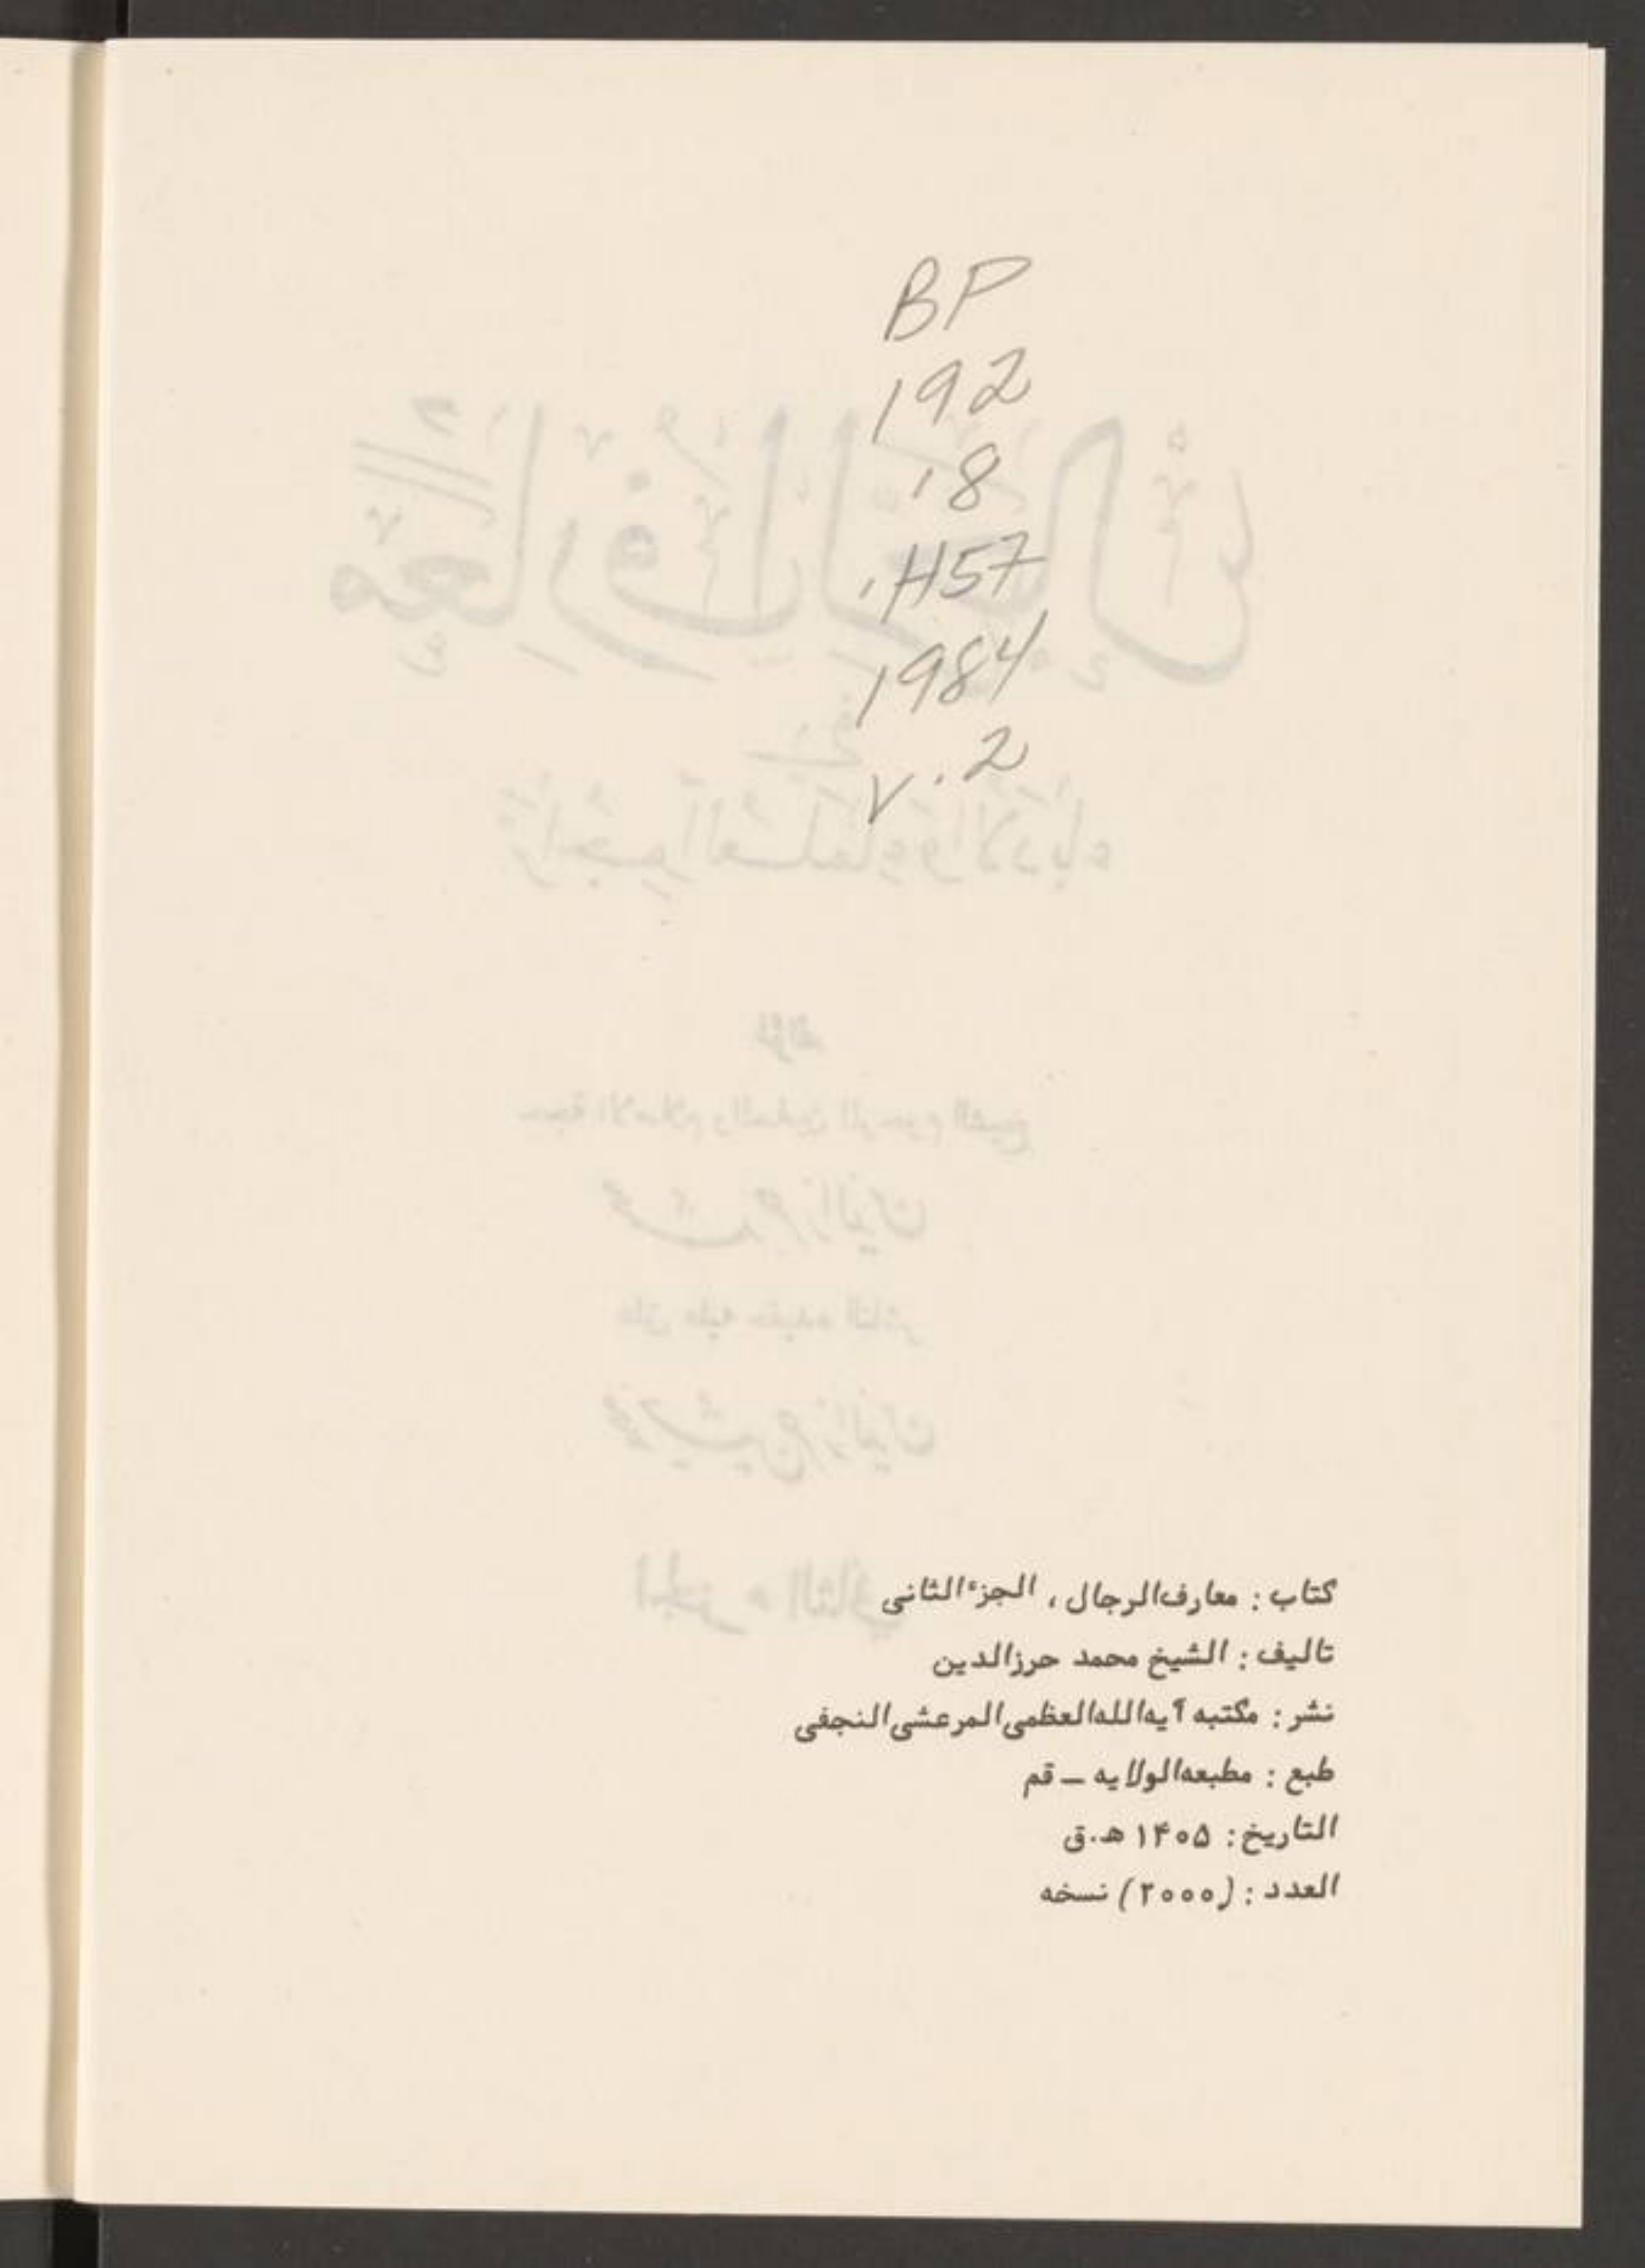 BP
192
.8
.H57
1984
v.2
كتاب : معارف‌الرجال ، الجزء‌الثانی
تالیف : الشیخ محمد حرزالدین
نشر : مکتبه آیه‌الله‌العظمی‌المرعشی‌النجفی
طبع : مطبعه‌الولایه – قم
التاریخ : ۱۴۰۵ ه‍.ق
العدد : (۲۰۰۰) نسخه